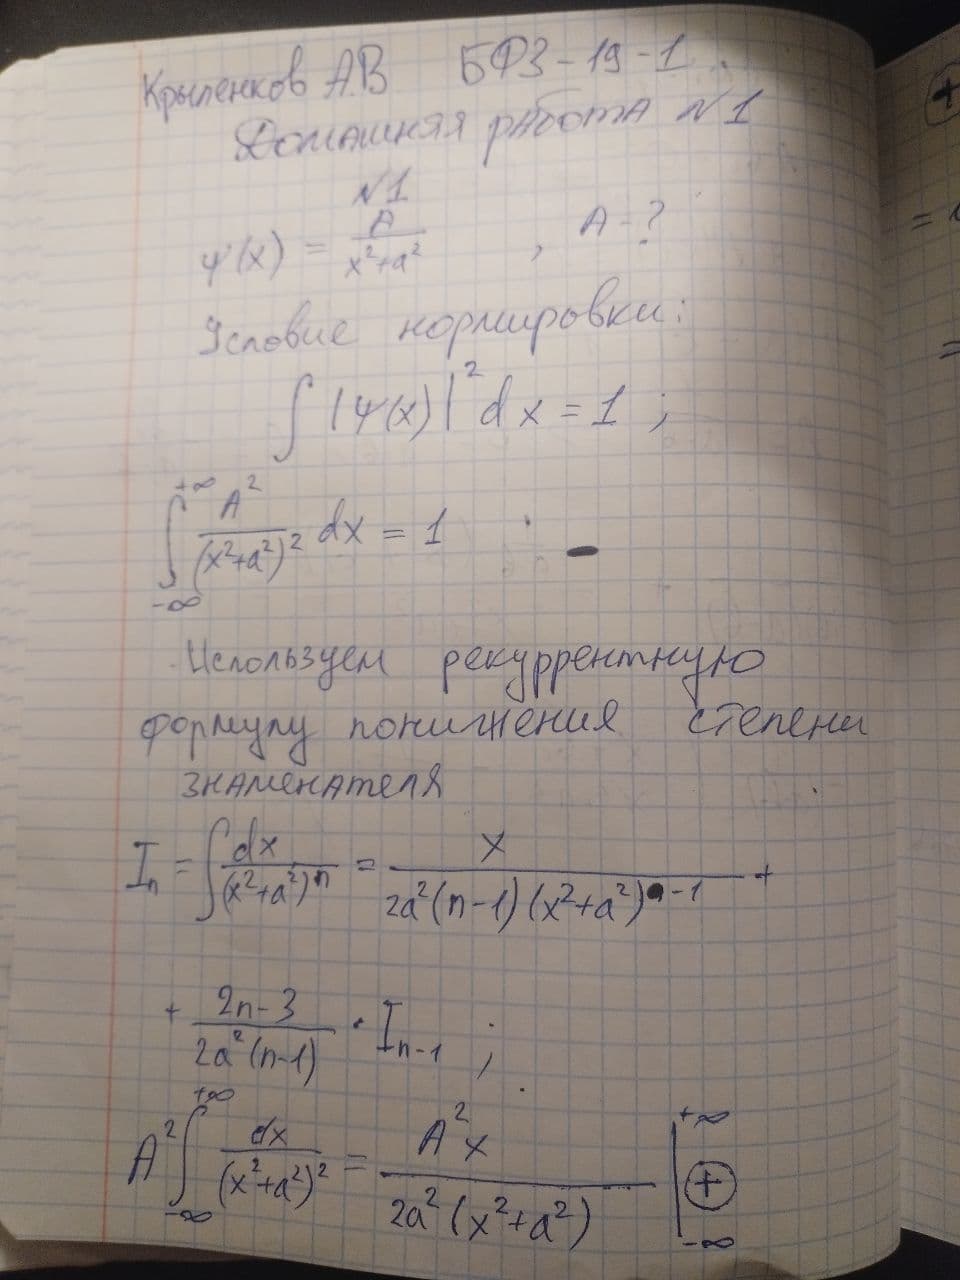 Крыленков А.В БФЗ-19-1
Домашняя работа №1
№1
ψ(x) = A/(x²+a²) , A-?
Условие нормировки:
∫ |ψ(x)|² dx = 1 ;
∫_{-∞}^{+∞} A²/(x²+a²)² dx = 1
Используем рекуррентную
формулу понижения степени
знаменателя
I_n = ∫ dx/(x²+a²)^n = x/(2a²(n-1)(x²+a²)^{n-1}) +
+ (2n-3)/(2a²(n-1)) · I_{n-1} ;
A² ∫_{-∞}^{+∞} dx/(x²+a²)² = A²x/(2a²(x²+a²)) |_{-∞}^{+∞} ⊕
⊕
=
=